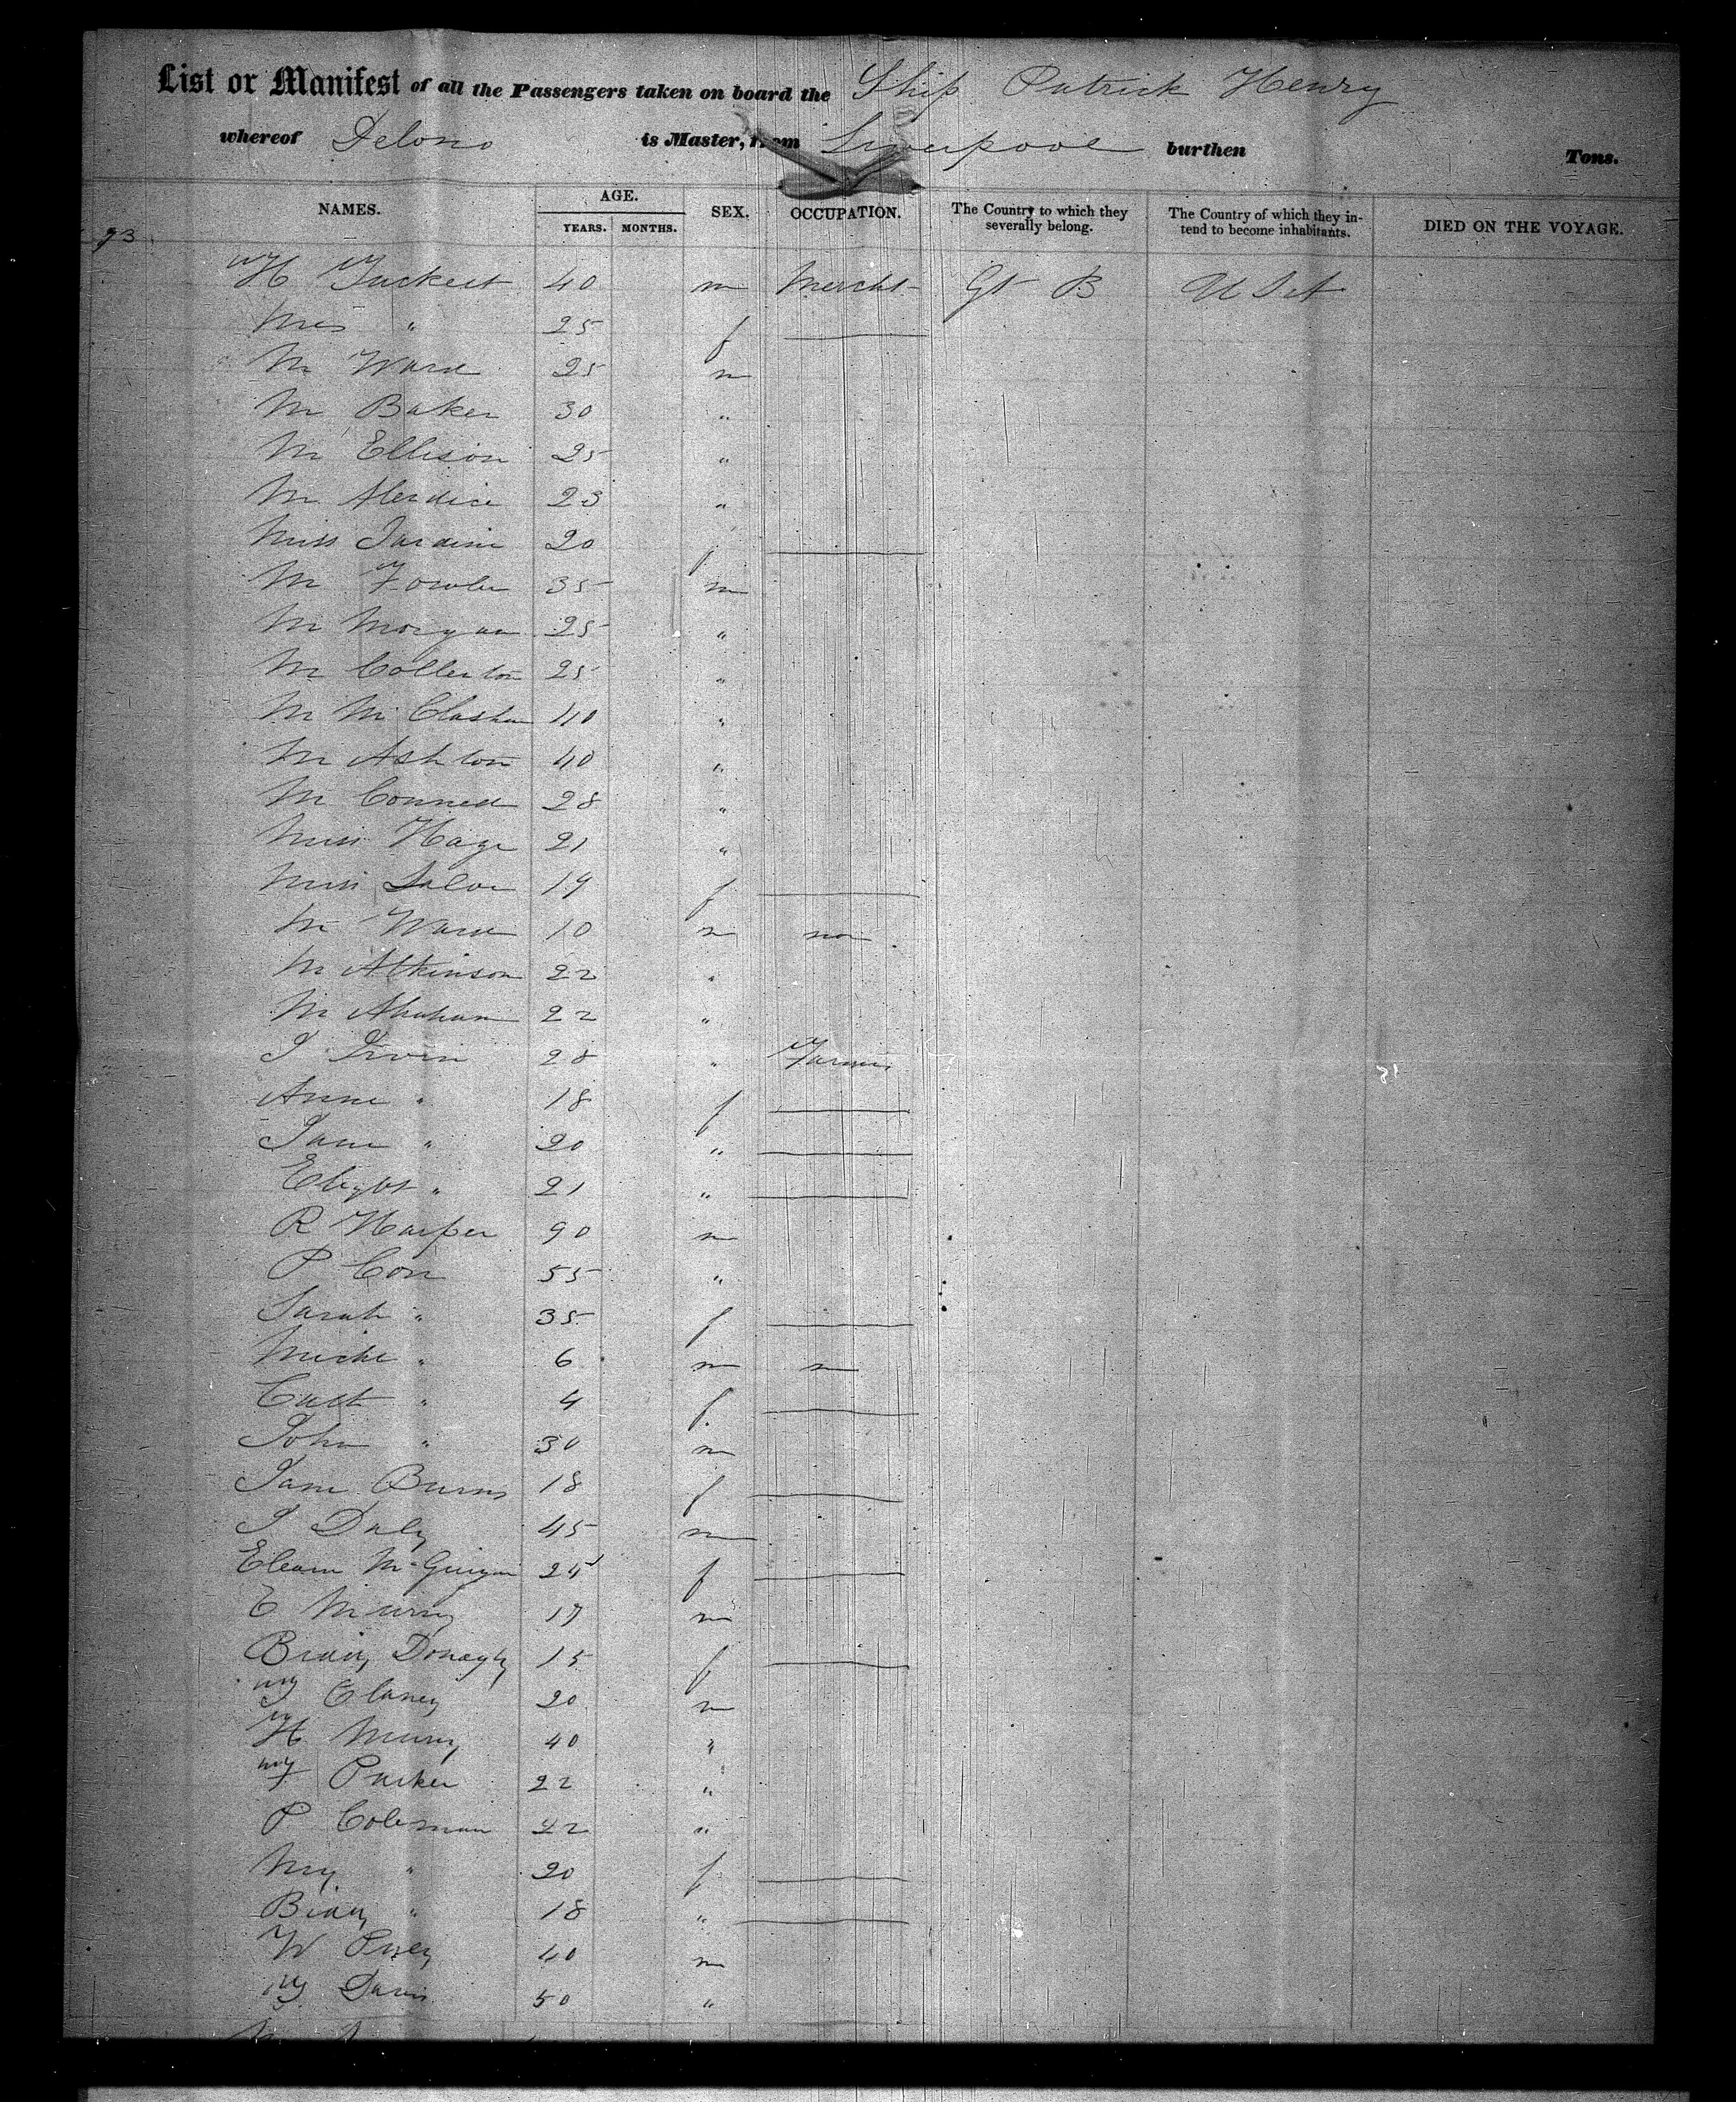 List or Manifest of all the Passengers taken on board the Ship Patrick Henry
whereof Delono is Master, from Liverpool burthen Tons.
NAMES. AGE. YEARS. MONTHS. SEX. OCCUPATION. The Country to which they severally belong. The Country of which they intend to become inhabitants. DIED ON THE VOYAGE.
93
H Tuckett 40 m Mercht Gt B U St
Mrs " 25 f
Mr Ward 25 m
Mr Baker 30 "
Mr Ellison 25 "
Mr 23 "
Miss Jardine 20 f
Mr Fowler 35 m
Mr Morgan 25 "
Mr Collerton 25 "
Mr Mc Clashan 40 "
Mr Ashton 40 "
Mr Conned 28 "
Miss Hage 21 "
Miss 19 f
Mr Ward 10 m non
Mr Atkinson 22 "
Mr Abraham 22 "
J Irvin 28 " Farmer
Anne " 18 f
Jane " 20 "
" 21 "
R Harper 90 m
P Con 55 "
Sarah " 35 f
Miche " 6 m
Cath " 4 f
John " 30 m
Jane Burns 18 f
J Daly 45 m
Eleanr McGuigan 24 f
E Murry 17 m
Bridy Donaghy 15 f
Clancy 20 m
H Murry 40 "
Parker 22 "
P Coleman 22 "
My " 20 f
Bridy " 18 "
W 40 m
Davis 50 "